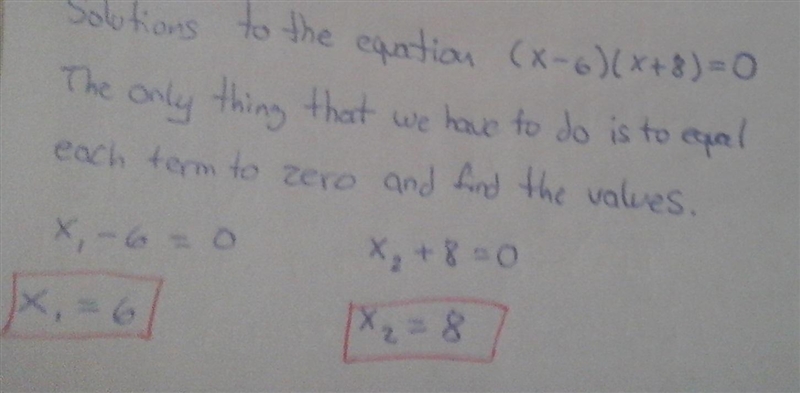 Solutions to the equation (x-6)(x+8)=0
The only thing that we have to do is to equal
each term to zero and find the values.
x₁ - 6 = 0 x₂ + 8 = 0
x₁ = 6 x₂ = 8